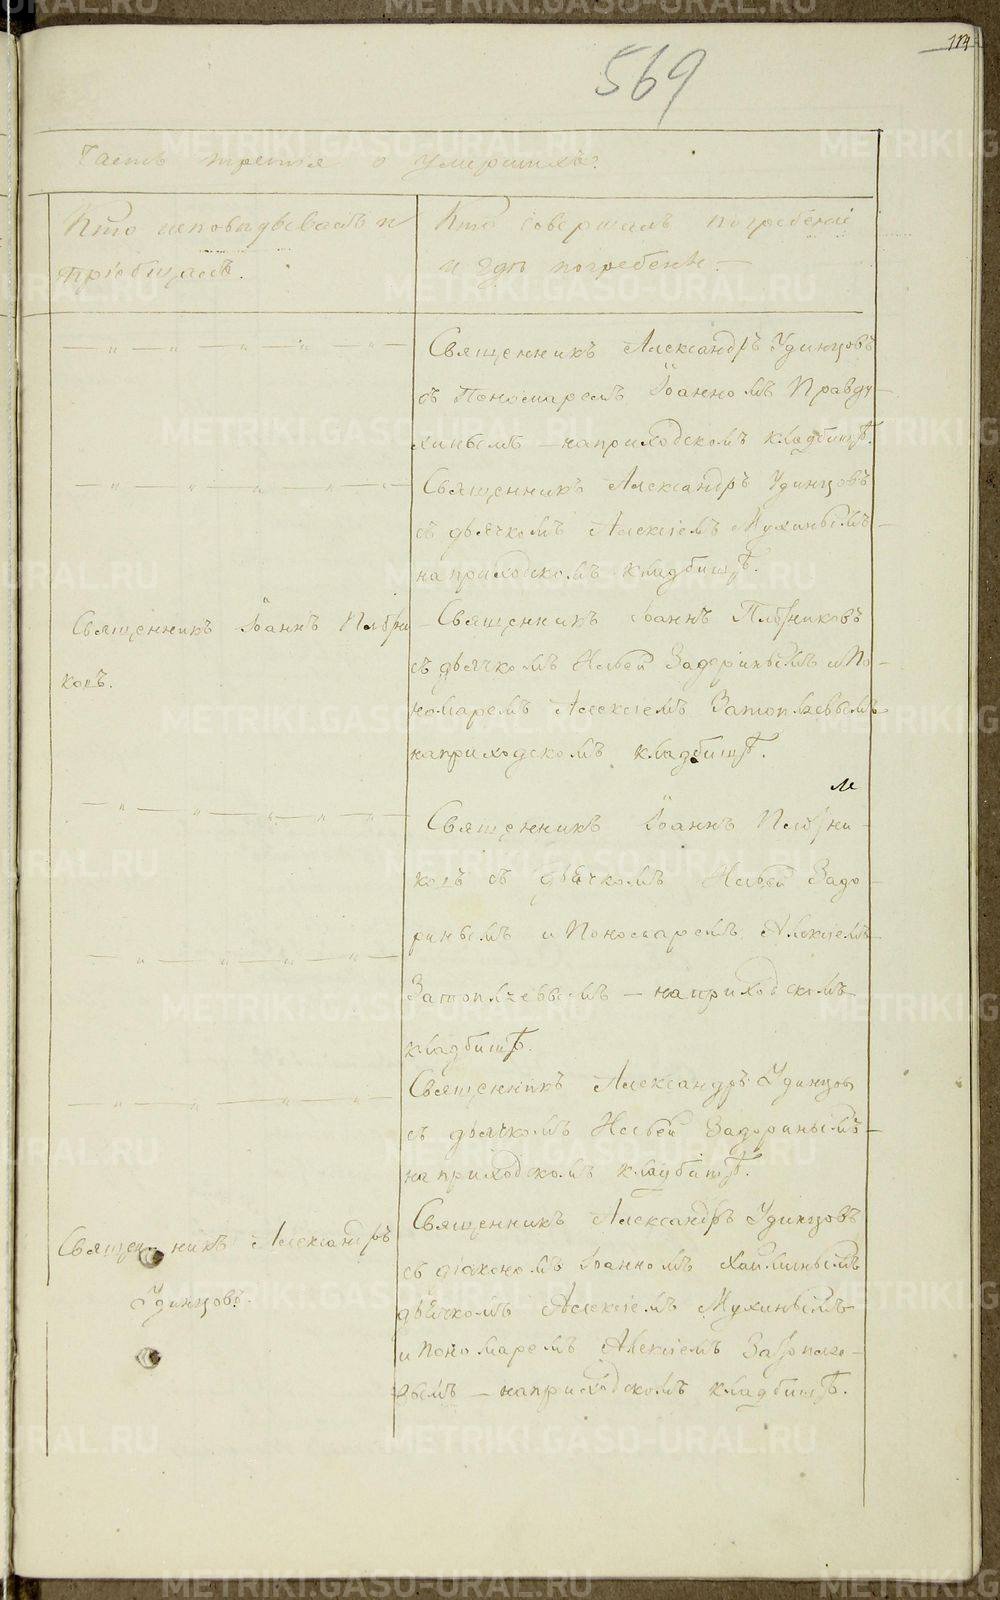 114
569
Часть третья о умершихъ.
Кто исповѣдывалъ и
пріобщалъ.
Кто совершалъ погребеніе
и гдѣ погребены.
Священникъ Александръ Удинцовъ
съ Пономаремъ Іоанномъ Правду-
хинымъ – на приходскомъ кладбищѣ.
Священникъ Александръ Удинцовъ
съ дьячкомъ Алексіемъ Мухинымъ –
на приходскомъ кладбищѣ.
Священникъ Іоаннъ
ковъ.
Священникъ Іоаннъ
съ дьячкомъ Задоринымъ и По-
номаремъ Алексіемъ
на приходскомъ кладбищѣ.
Священникъ Іоаннъ
ковъ съ дьячкомъ Задо-
ринымъ и Пономаремъ Алексіемъ
– на приходскомъ
кладбищѣ.
Священникъ Александръ Удинцовъ
съ дьячкомъ Задоринымъ –
на приходскомъ кладбищѣ.
Священникъ Александръ
Удинцовъ.
Священникъ Александръ Удинцовъ
съ діакономъ Іоанномъ
дьячкомъ Алексіемъ Мухинымъ
и Пономаремъ Алексіемъ
вымъ – на приходскомъ кладбищѣ.
METRIKI.GASO-URAL.RU